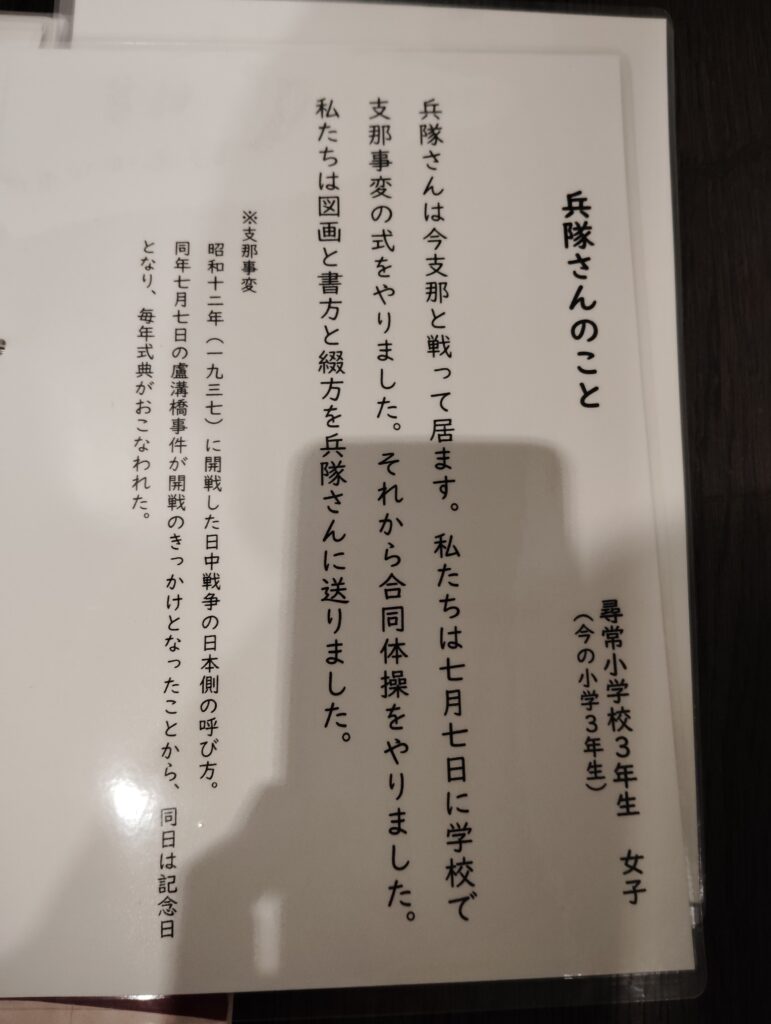 兵隊さんのこと
尋常小学校3年生　女子
（今の小学3年生）
兵隊さんは今支那と戦って居ます。私たちは七月七日に学校で
支那事変の式をやりました。それから合同体操をやりました。
私たちは図画と書方と綴方を兵隊さんに送りました。
※支那事変
昭和十二年（一九三七）に開戦した日中戦争の日本側の呼び方。
同年七月七日の盧溝橋事件が開戦のきっかけとなったことから、同日は記念日
となり、毎年式典がおこなわれた。